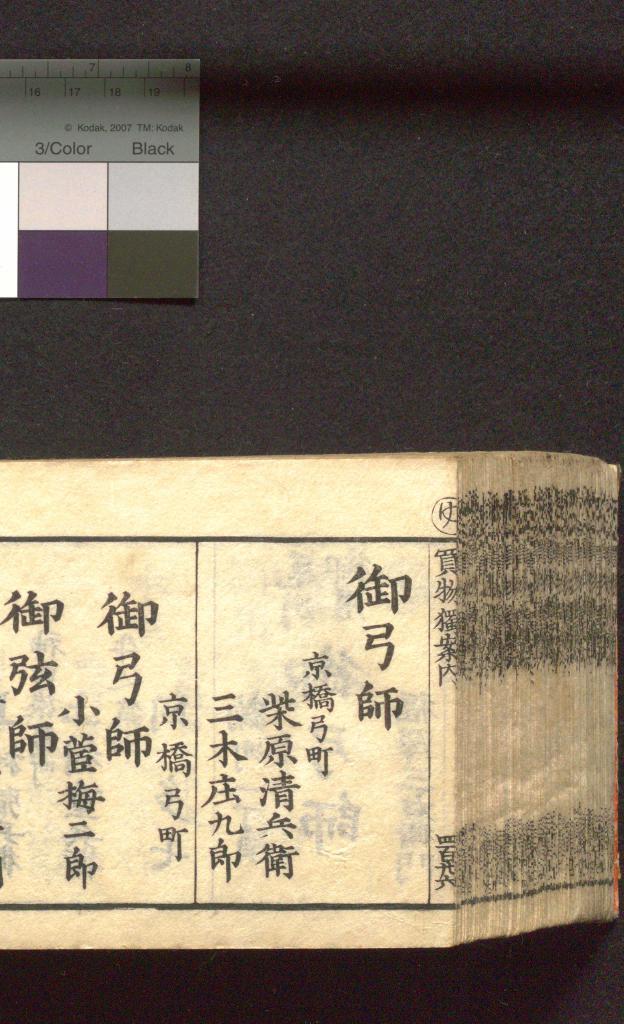 7 8
16 17 18 19
© Kodak, 2007 TM: Kodak
3/Color Black
ゆ
買物獨案内
御弓師
京橋弓町
柴原清兵衛
三木庄九郎
京橋弓町
御弓師
小菅梅二郎
御弦師